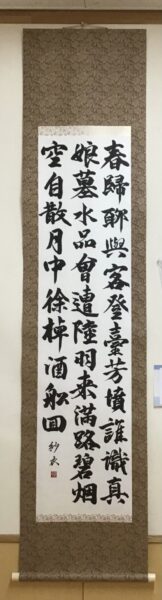 春歸聊與客登臺芳墳誰識真
娘墓水品曾遭陸羽来滿路碧烟
空自散月中徐棹酒船回
紗衣